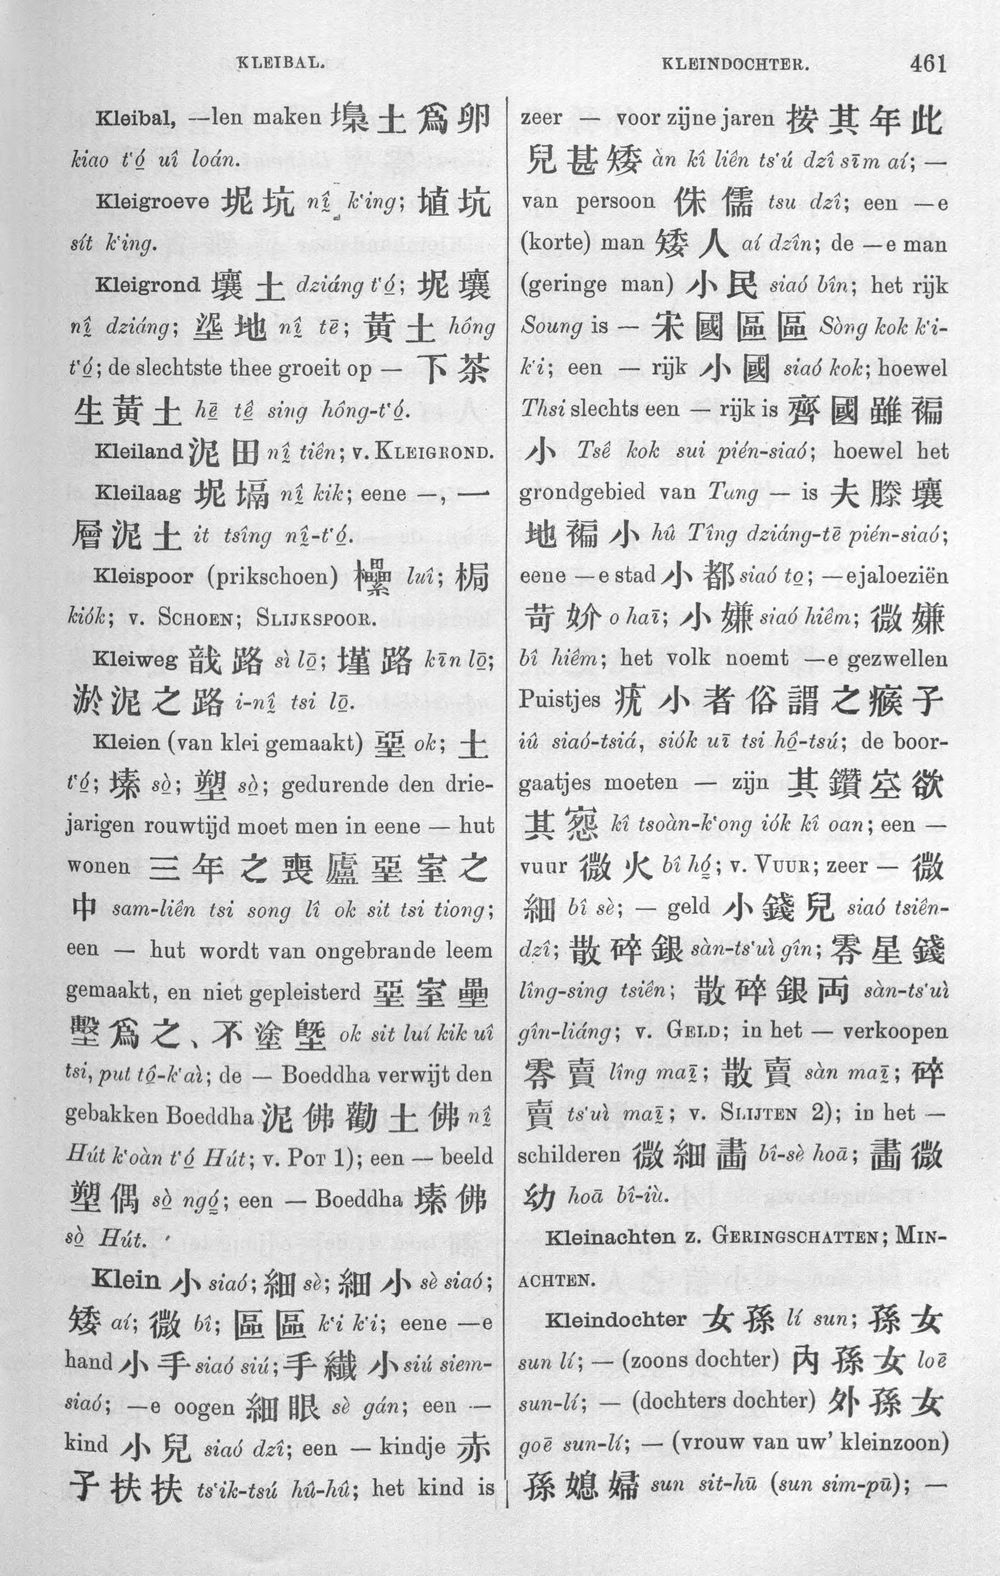 KLEIBAL.
KLEINDOCHTER.
461
Kleibal, —len maken 堁土爲卵
kiao t'ó uî loán.
Kleigroeve 坭坑 nî k'ing; 埴坑
sít k'ing.
Kleigrond 壤土 dziáng t'ó; 坭壤
nî dziáng; 埿地 nî tē; 黃土 hông
t'ó; de slechtste thee groeit op — 下茶
生黃土 hē tê sing hông-t'ó.
Kleiland 泥田 nî tiên; v. KLEIGROND.
Kleilaag 坭塥 nî kik; eene —, 一
層泥土 it tsîng nî-t'ó.
Kleispoor (prikschoen) 欙 luî; 梮
kiók; v. SCHOEN; SLIJKSPOOR.
Kleiweg 路 sì lō; 墐路 kīn lō;
淤泥之路 i-nî tsi lō.
Kleien (van klei gemaakt) 堊 ok; 土
t'ó; 塐 sò; 塑 sò; gedurende den drie-
jarigen rouwtijd moet men in eene — hut
wonen 三年之喪廬堊室之
中 sam-liên tsi song lî ok sit tsi tiong;
een — hut wordt van ongebrande leem
gemaakt, en niet gepleisterd 堊室壘
墼爲之、不塗墍 ok sit luí kik uî
tsi, put tô-k'aì; de — Boeddha verwijt den
gebakken Boeddha 泥佛勸土佛 nî
Hút k'oàn t'ó Hút; v. POT 1); een — beeld
塑偶 sò ngó; een — Boeddha 塐佛
sò Hút.
Klein 小 siaó; 細 sè; 細小 sè siaó;
矮 aí; 微 bî; 區區 k'i k'i; eene —e
hand 小手 siaó siú; 手纖小 siú siem-
siaó; —e oogen 細眼 sè gán; een —
kind 小兒 siaó dzî; een — kindje 赤
子扶扶 ts'ik-tsú hû-hû; het kind is
zeer — voor zijne jaren 按其年此
兒甚矮 àn kî liên ts'ú dzî sīm aí; —
van persoon 侏儒 tsu dzî; een —e
(korte) man 矮人 aí dzîn; de —e man
(geringe man) 小民 siaó bîn; het rijk
Soung is — 宋國區區 Sòng kok k'i-
k'i; een — rijk 小國 siaó kok; hoewel
Thsi slechts een — rijk is 齊國雖褊
小 Tsê kok sui pién-siaó; hoewel het
grondgebied van Tung — is 夫滕壤
地褊小 hû Tîng dziáng-tē pién-siaó;
eene —e stad 小都 siaó to; —e jaloeziën
苛妎 o haī; 小嫌 siaó hiêm; 微嫌
bî hiêm; het volk noemt —e gezwellen
Puistjes 疣小者俗謂之瘊子
iû siaó-tsiá, siók uī tsi hô-tsú; de boor-
gaatjes moeten — zijn 其鑽空欲
其窓 kî tsoàn-k'ong iók kî oan; een —
vuur 微火 bî hó; v. VUUR; zeer — 微
細 bî sè; — geld 小錢兒 siaó tsiên-
dzî; 散碎銀 sàn-ts'uì gîn; 零星錢
lîng-sing tsiên; 散碎銀両 sàn-ts'uì
gîn-liáng; v. GELD; in het — verkoopen
零賣 lîng maī; 散賣 sàn maī; 碎
賣 ts'uì maī; v. SLIJTEN 2); in het —
schilderen 微細畵 bî-sè hoā; 畵微
幼 hoā bî-iù.
Kleinachten z. GERINGSCHATTEN; MIN-
ACHTEN.
Kleindochter 女孫 lí sun; 孫女
sun lí; — (zoons dochter) 內孫女 loē
sun-lí; — (dochters dochter) 外孫女
goē sun-lí; — (vrouw van uw' kleinzoon)
孫媳婦 sun sit-hū (sun sim-pū); —